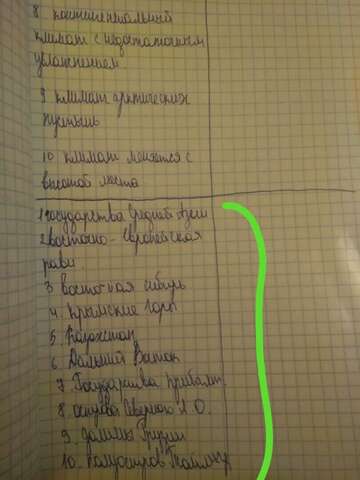 8 континентальный
климат с недостаточным
увлажнением
9 климат арктических
пустынь
10 климат меняется с
высотой места
1 государства Средней Азии
2 восточно-европейская
равн
3 восточная сибирь
4 Крымские Горы
5. Казахстан
6. Дальний Восток
7 Государства Прибалт
8. острова Северного Л.О.
9. долины Грузии
10. полуостров Таймыр